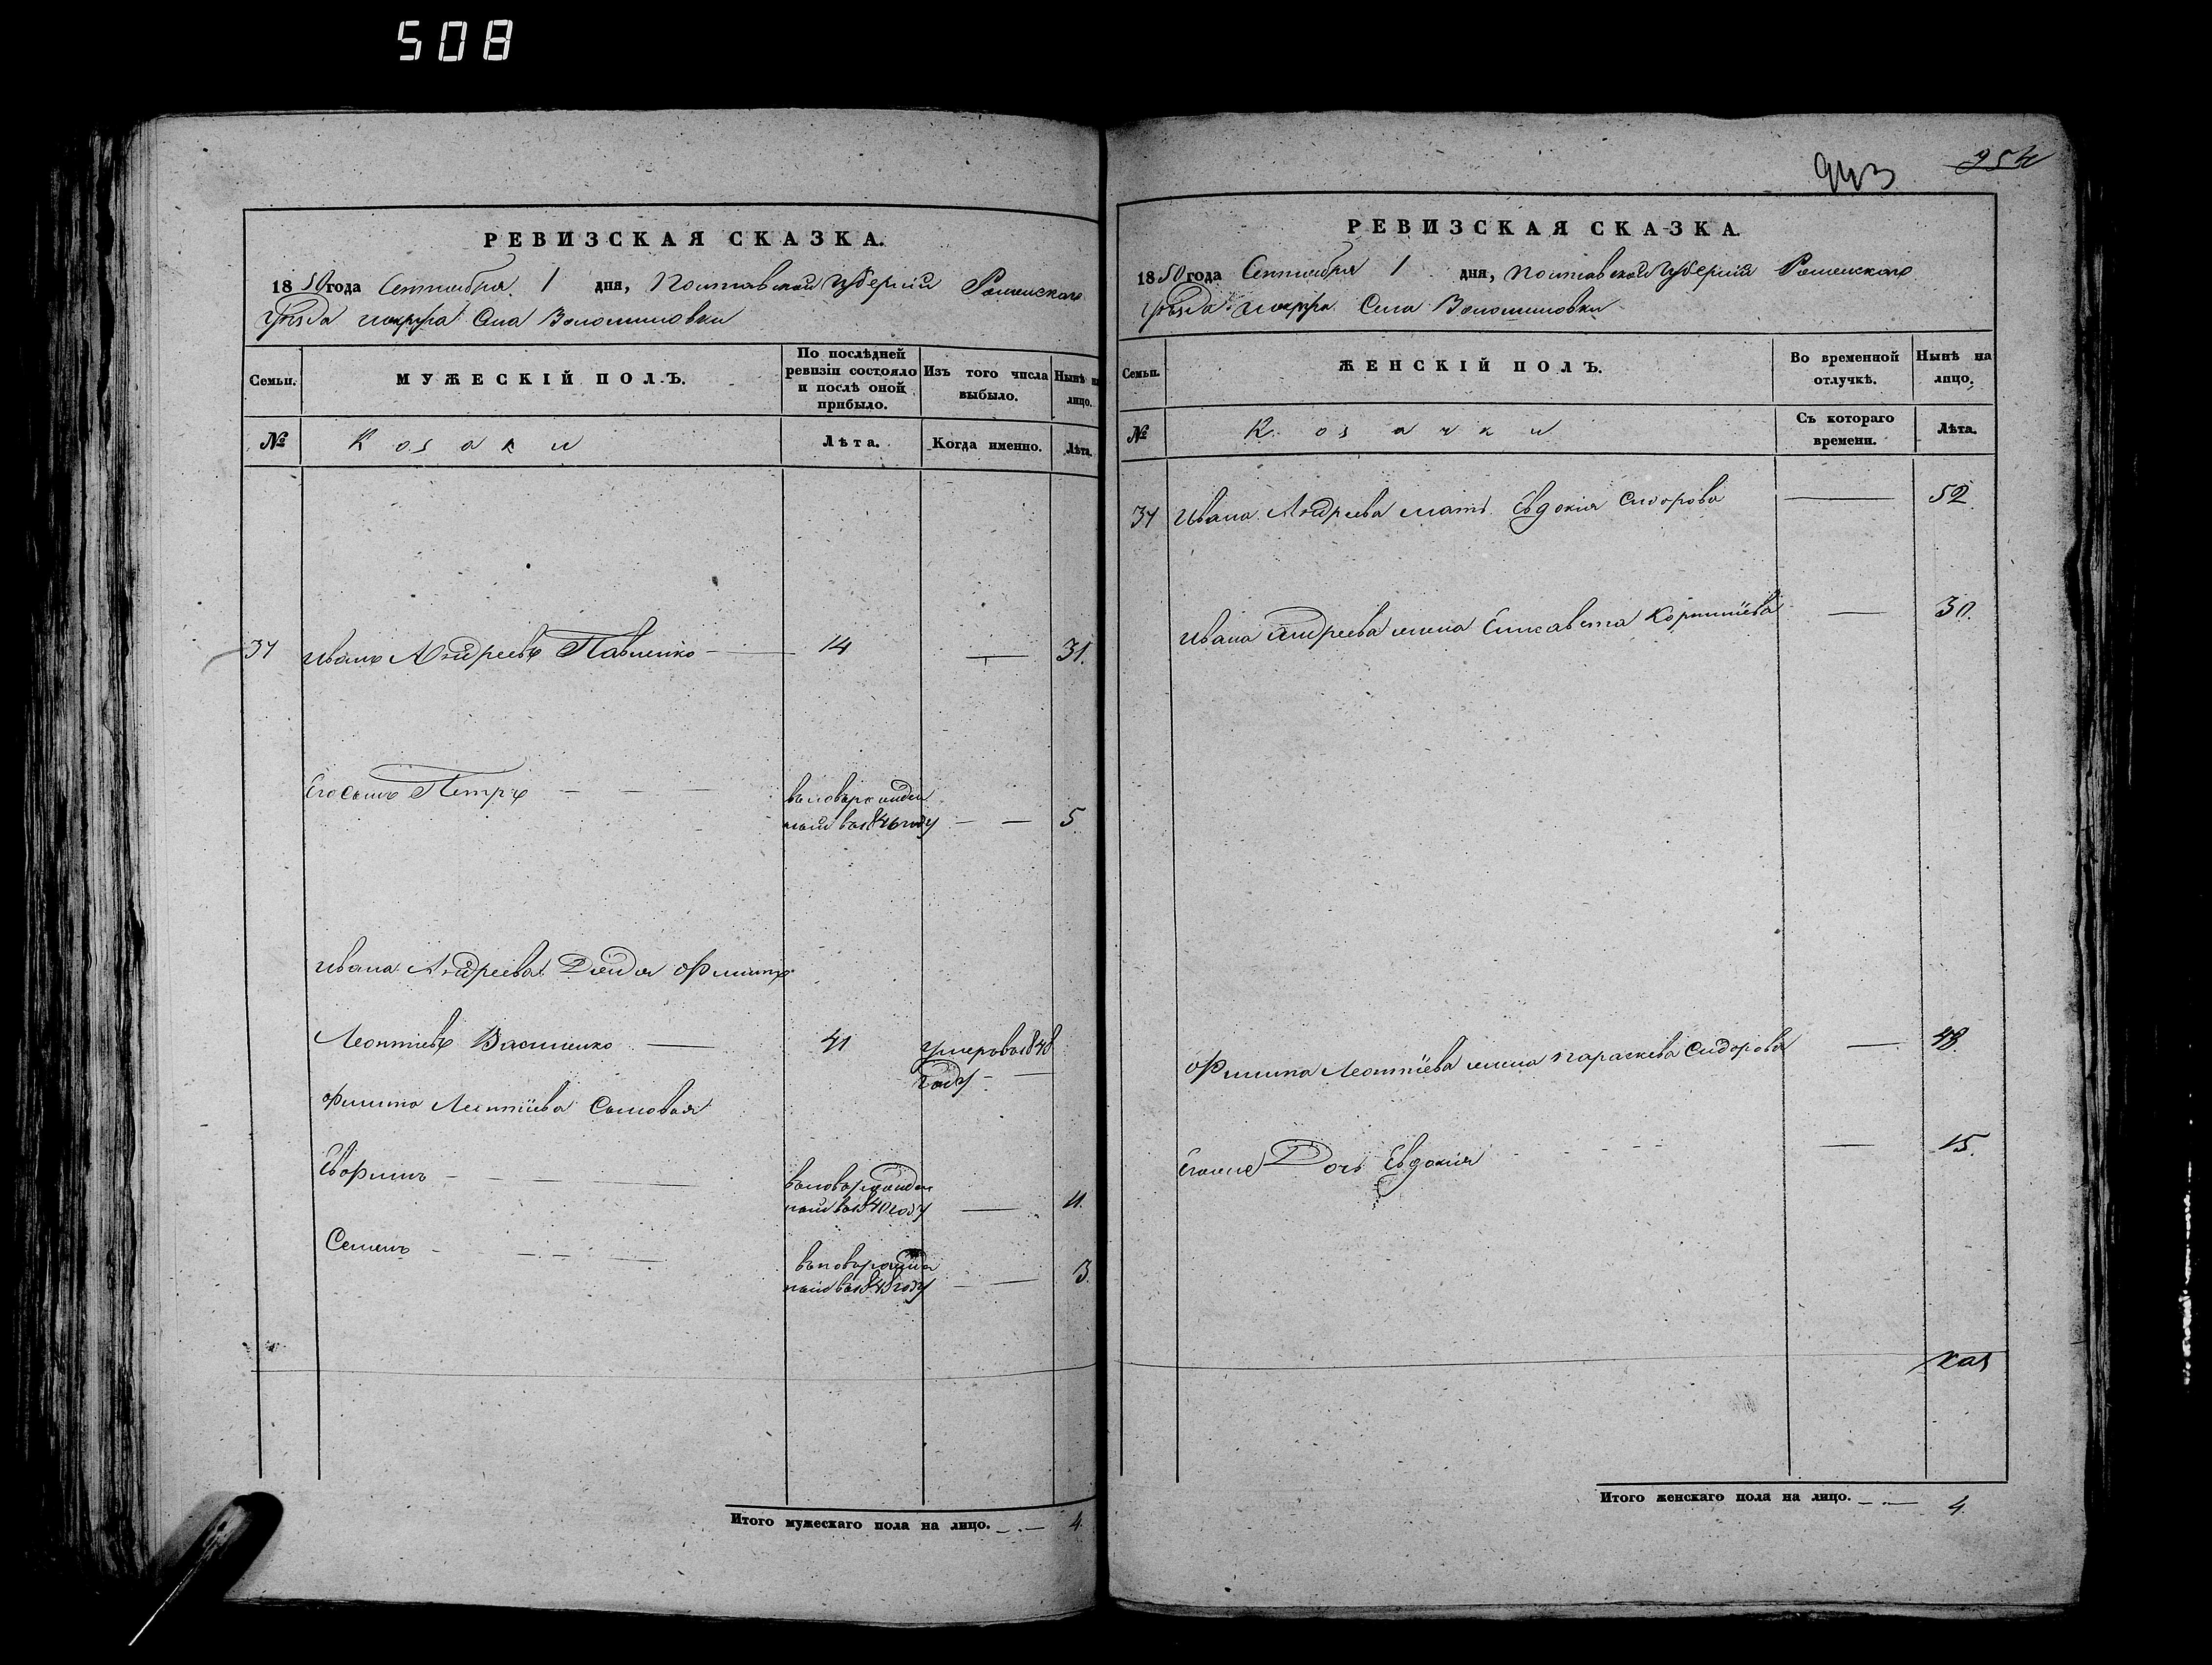 508
РЕВИЗСКАЯ СКАЗКА.
1850 года Сентября 1 дня, Полтавской Губерніи Роменскаго
Уѣзда и округа Села Волошиновки
Семьи.
МУЖЕСКІЙ ПОЛЪ.
По послѣдней ревизіи состояло и послѣ оной прибыло.
Изъ того числа выбыло.
Нынѣ на лицо.
№
Козаки
Лѣта.
Когда именно.
Лѣта.
Иванъ Андреевъ Павленко 14 31.
Его сынъ Петръ
въ 1846 году 5.
Ивана Андреева Дядя Филипъ
Леонтіевъ Василенко 41 умеръ в 1848
году
Филипа Леонтіева Сыновья
Евфимъ
в 1840 году
Семенъ
году 3.
Итого мужескаго пола на лицо. 4.
943
954
РЕВИЗСКАЯ СКАЗКА.
1850 года Сентября 1 дня, Полтавской Губерніи Роменскаго
Уѣзда и округа Села Волошиновки
Семьи.
ЖЕНСКІЙ ПОЛЪ.
Во временной отлучкѣ.
Нынѣ на лицо.
№
Козачки
Съ котораго времени.
Лѣта.
Ивана Андреева мать Евдокія Сидорова 52.
Ивана Андреева жена Елисавета Корнѣіева 30.
Филипа Леонтіева жена Параскева Сидорова 48.
Дочь Евдокія 15.
Итого женскаго пола на лицо. 4.